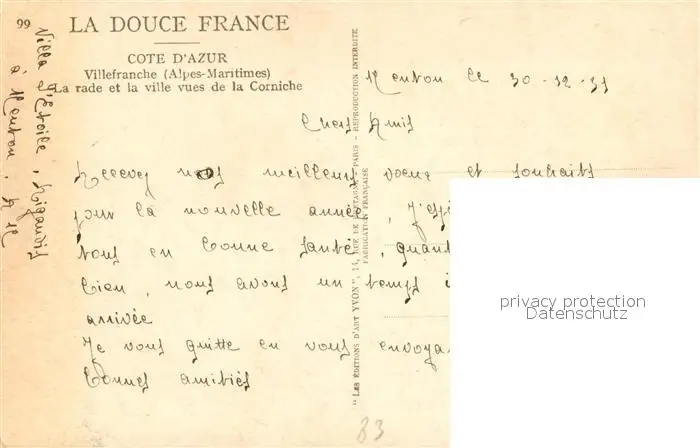 99
LA DOUCE FRANCE
COTE D'AZUR
Villefranche (Alpes-Maritimes)
La rade et la ville vues de la Corniche
Villa l'Etoile,
à Menton,
Menton le 30-12-31
Chers Amis
Recevez nos meilleurs voeux et souhaits
pour la nouvelle année,
vous en bonne santé,
bien, nous avons un temps
arrivée
Je vous quitte en vous
bonnes amitiés
"LES ÉDITIONS D'ART YVON", 14, RUE DE BRETAGNE - PARIS - REPRODUCTION INTERDITE
FABRICATION FRANÇAISE
83
privacy protection
Datenschutz